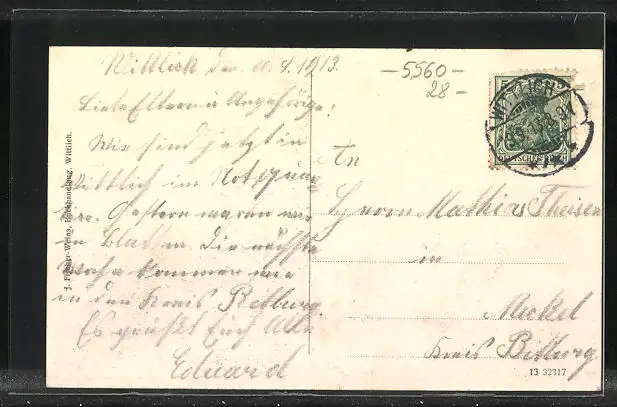 Wittlich den 10.8.1913.
Liebe Eltern u Angehörige!
Wir sind jetzt in
Wittlich im Notquar
hier. Gestern waren wir
in Die nächste
Woche kommen wir
in den Kreis Bitburg.
Es grüßt Euch Alle
Eduard
-5560-
28-
An
Herrn Mathias Theisen
in
Meckel
Kreis Bitburg
WITTLICH
DEUTSCHES REICH
J. Fischer-Weins, Buchhandlung, Wittlich.
13 32317